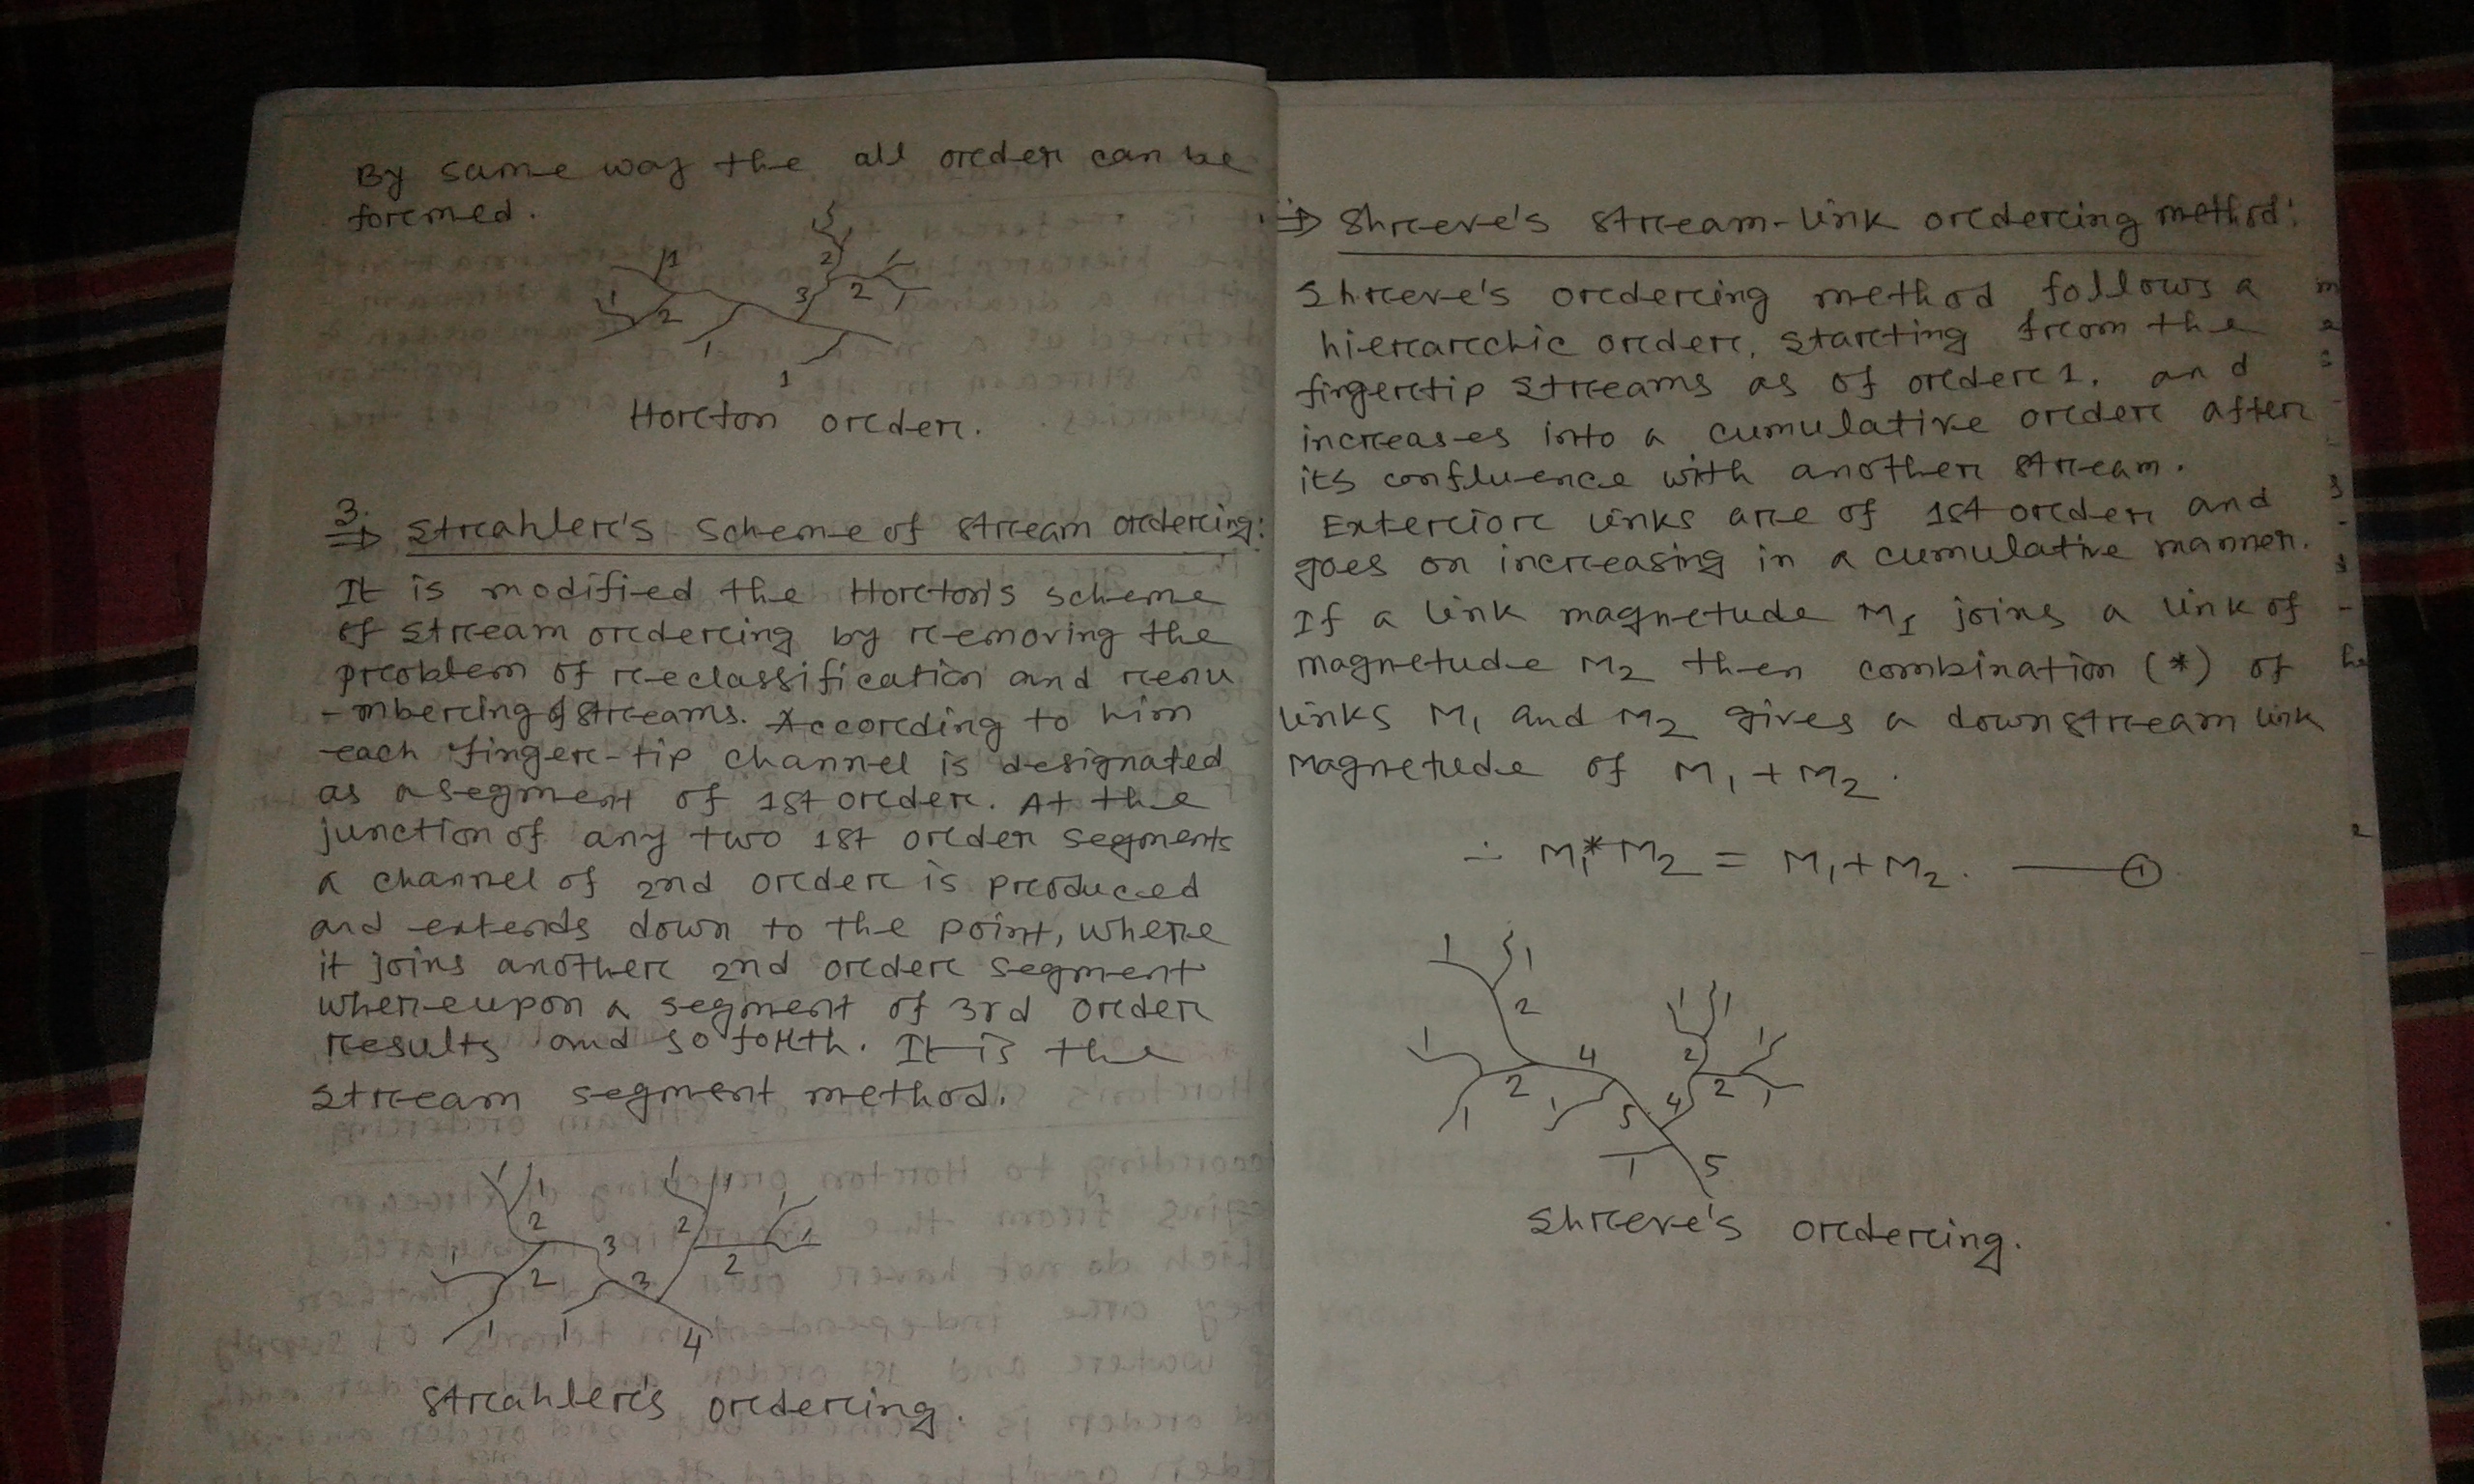 By same way the all order can be
formed.
1
1
2
1
3
2
2
1
1
1
Horton order.
3.
⇒ Strahler's scheme of stream ordering:
It is modified the Horton's scheme
of stream ordering by removing the
problem of reclassification and renu
-mbering of streams. According to him
each finger-tip channel is designated
as a segment of 1st order. At the
junction of any two 1st order segments
a channel of 2nd order is produced
and extends down to the point, where
it joins another 2nd order segment
whereupon a segment of 3rd order
results and so forth. It is the
stream segment method.
1 1 1 1
2 2 1
1 3 1
2 3 2
1 1 4
Strahler's ordering.
⇒ Shreeve's stream-link ordering method:
Shreeve's ordering method follows a
hierarchic order, starting from the
fingertip streams as of order 1. and
increases into a cumulative order after
its confluence with another stream.
Exterior links are of 1st order and
goes on increasing in a cumulative manner.
If a link magnetude M1 joins a link of
magnetude M2 then combination (*) of
links M1 and M2 gives a downstream link
magnetude of M1+M2.
∴ M1*M2 = M1+M2. —— ①
1 1
2 1 1
1 4 2 1
2 1 5 4 2 1
1 1 5
Shreeve's ordering.